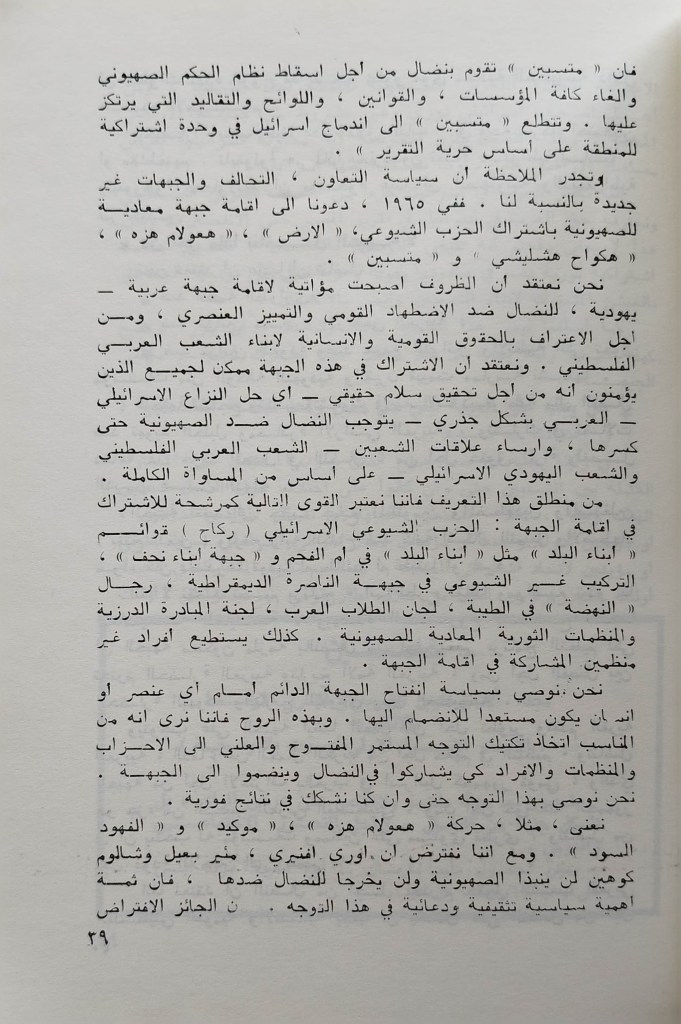 فان « متسبين » تقوم بنضال من أجل اسقاط نظام الحكم الصهيوني
والغاء كافة المؤسسات ، والقوانين ، واللوائح والتقاليد التي يرتكز
عليها . وتتطلع « متسبين » الى اندماج اسرائيل في وحدة اشتراكية
للمنطقة على أساس حرية التقرير » .
وتجدر الملاحظة أن سياسة التعاون ، التحالف والجبهات غير
جديدة بالنسبة لنا . ففي ١٩٦٥ ، دعونا الى اقامة جبهة معادية
للصهيونية باشتراك الحزب الشيوعي، « الارض » ، « هعولام هزه » ،
« هكواح هشليشي » و « متسبين » .
نحن نعتقد أن الظروف أصبحت مؤاتية لاقامة جبهة عربية ـ
يهودية ، للنضال ضد الاضطهاد القومي والتمييز العنصري ، ومـن
أجل الاعتراف بالحقوق القومية والانسانية لابناء الشعب العربـي
الفلسطيني . ونعتقد أن الاشتراك في هذه الجبهة ممكن لجميـع الذين
يؤمنون أنه من أجل تحقيق سلام حقيقي ـ أي حل النزاع الاسرائيلي
ـ العربـي بشكل جذري ـ يتوجب النضال ضـد الصهيونية حتى
كسرها ، وارساء علاقات الشعبين ـ الشعب العربي الفلسطيني
والشعب اليهودي الاسرائيلي ـ على أساس من المساواة الكاملة .
من منطلق هذا التعريف فاننا نعتبر القوى التالية كمرشحة للاشتراك
في اقامة الجبهة : الحزب الشيوعي الاسرائيلي ( ركاح ) قوائـم
« أبناء البلد » مثل « أبناء البلد » في أم الفحم و « جبهة أبناء نحف » ،
التركيب غـير الشيوعي في جبهـة الناصرة الديمقراطية ، رجـال
« النهضة » في الطيبة ، لجان الطلاب العرب ، لجنة المبادرة الدرزية
والمنظمات الثورية المعادية للصهيونية . كذلك يستطيع أفراد غـير
منظمين المشاركة في اقامة الجبهة .
نحن نوصي بسياسة انفتاح الجبهة الدائم أمـام أي عنصر أو
انسان يكون مستعدا للانضمام اليها . وبهذه الروح فاننا نرى انه من
المناسب اتخاذ تكتيك التوجه المستمر المفتـوح والعلني الى الاحـزاب
والمنظمات والافراد كي يشاركوا في النضال وينضموا الى الجبهـة .
نحن نوصي بهذا التوجه حتى وان كنا نشكك في نتائج فورية .
نعنى ، مثلا ، حركة « هعولام هزه » ، « موكيد » و « الفهود
السود » . ومع اننا نفترض ان اوري افنيري ، مئير بعيل وشالوم
كوهين لن ينبذا الصهيونية ولن يخرجا للنضال ضدها ، فان ثمـة
اهمية سياسية تثقيفية ودعائية في هذا التوجه . ن الجائز الافتراض
٣٩